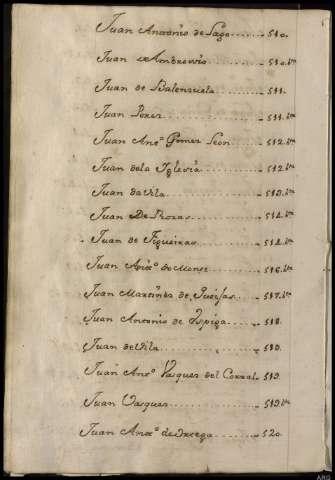 Juan Antonio de Lago ........ 510.
Juan Ambrossio ........ 510. vta
Juan de Balenzuela ........ 511.
Juan Perez ........ 511. vta
Juan Anto. Gomez Leon ........ 512. vta
Juan dela Iglesia ........ 512 vta
Juan da Vila ........ 513. vta
Juan De Rozas ........ 514. vta
Juan de Figueiras ........ 514. vta
Juan Anto. de Monse ........ 516. vta
Juan Martinez de ........ 517. vta
Juan Antonio de Espiga ........ 518.
Juan de Vila ........ 519.
Juan Anto. Vasques del Corral. 519.
Juan Vasques ........ 519. vta
Juan Anto. de Ortega ........ 520.